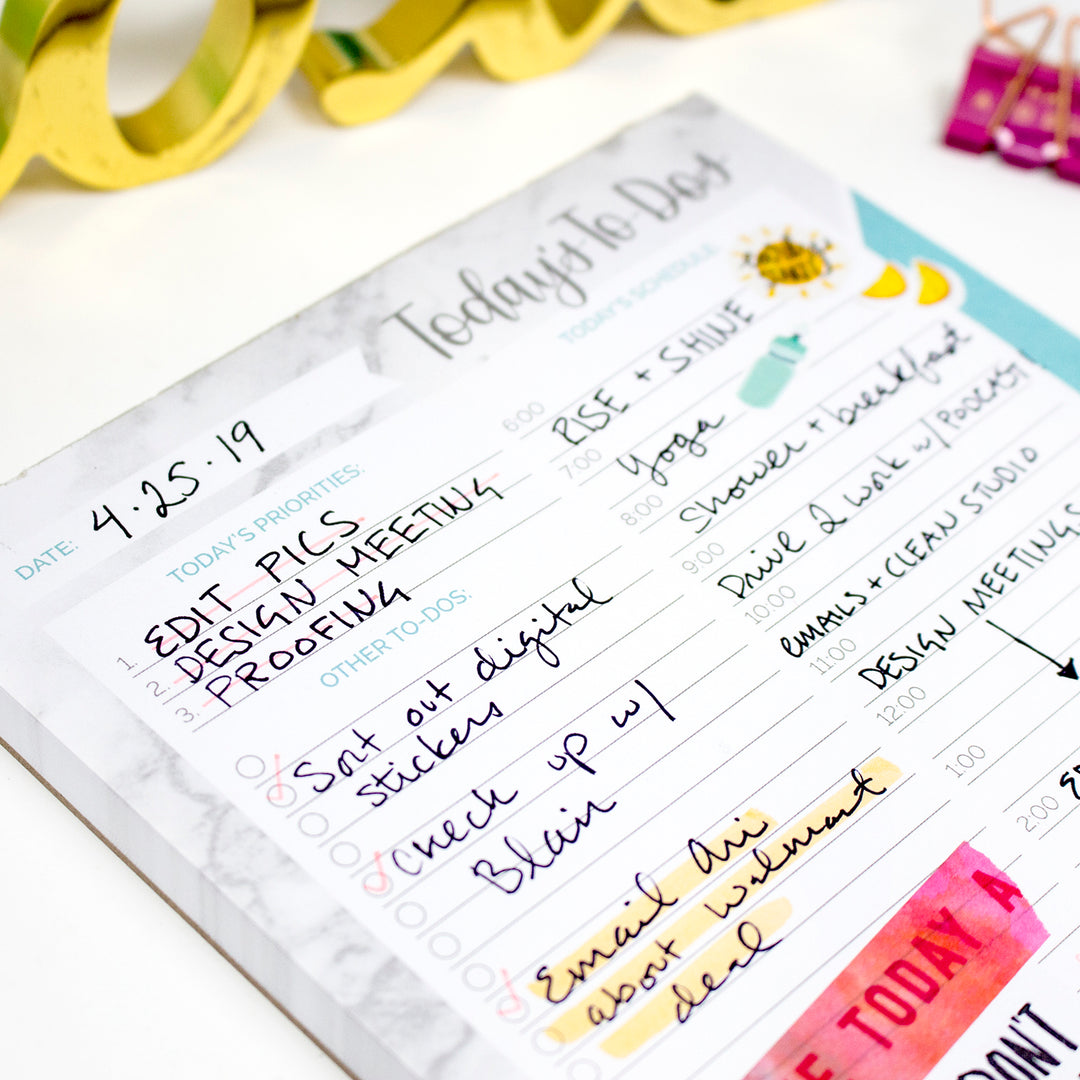 Today's To-Dos
DATE: 4.25.19
TODAY'S PRIORITIES:
1. EDIT PICS
2. DESIGN MEETING
3. PROOFING
OTHER TO-DOS:
Sort out digital
stickers
check up w/
Blair
Email Ari
about Walmart
deal
TODAY'S SCHEDULE
6:00 RISE + SHINE
7:00 Yoga
8:00 Shower + breakfast
9:00 Drive 2 work w/ PODCAST
10:00 EMAILS + CLEAN STUDIO
11:00 DESIGN MEETINGS
12:00
1:00
2:00
TODAY A
DON'T